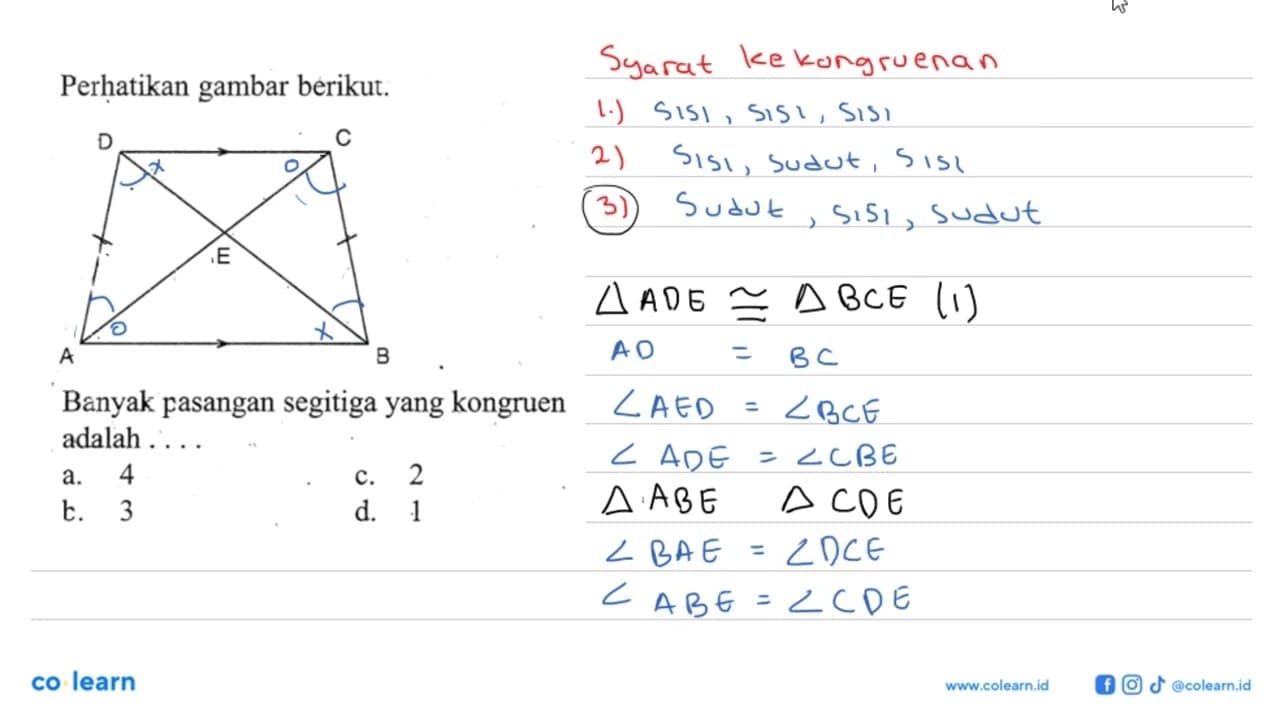 Perhatikan gambar berikut.
D
C
x
o
E
A
o
x
B
Banyak pasangan segitiga yang kongruen
adalah . . . .
a. 4
c. 2
b. 3
d. 1
Syarat kekongruenan
1.) sisi, sisi, sisi
2) Sisi, sudut, sisi
3) Sudut, sisi, sudut
△ ADE ≅ △ BCE (1)
AD = BC
∠AED = ∠BCE
∠ ADE = ∠CBE
△ ABE △ CDE
∠ BAE = ∠DCE
∠ ABE = ∠CDE
co learn
www.colearn.id
@colearn.id